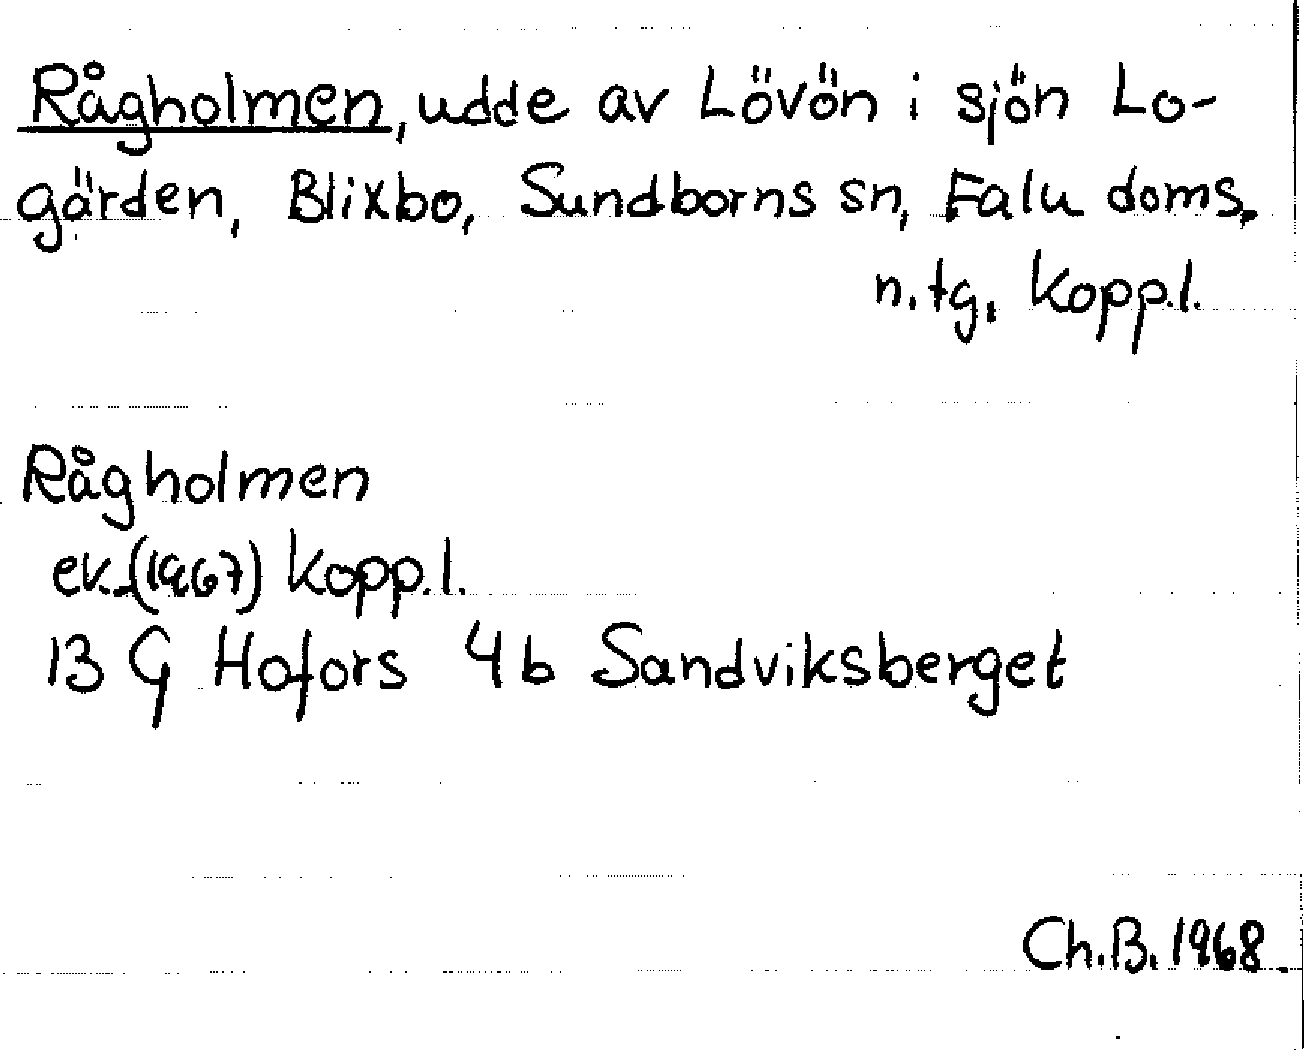 Rågholmen, udde av Lövön i sjön Lo-
gärden, Blixbo, Sundborns sn, Falu doms.
n.tg. Kopp.l.
Rågholmen
ek.(1967) Kopp.l.
13 G Hofors 4b Sandviksberget
Ch.B. 1968.